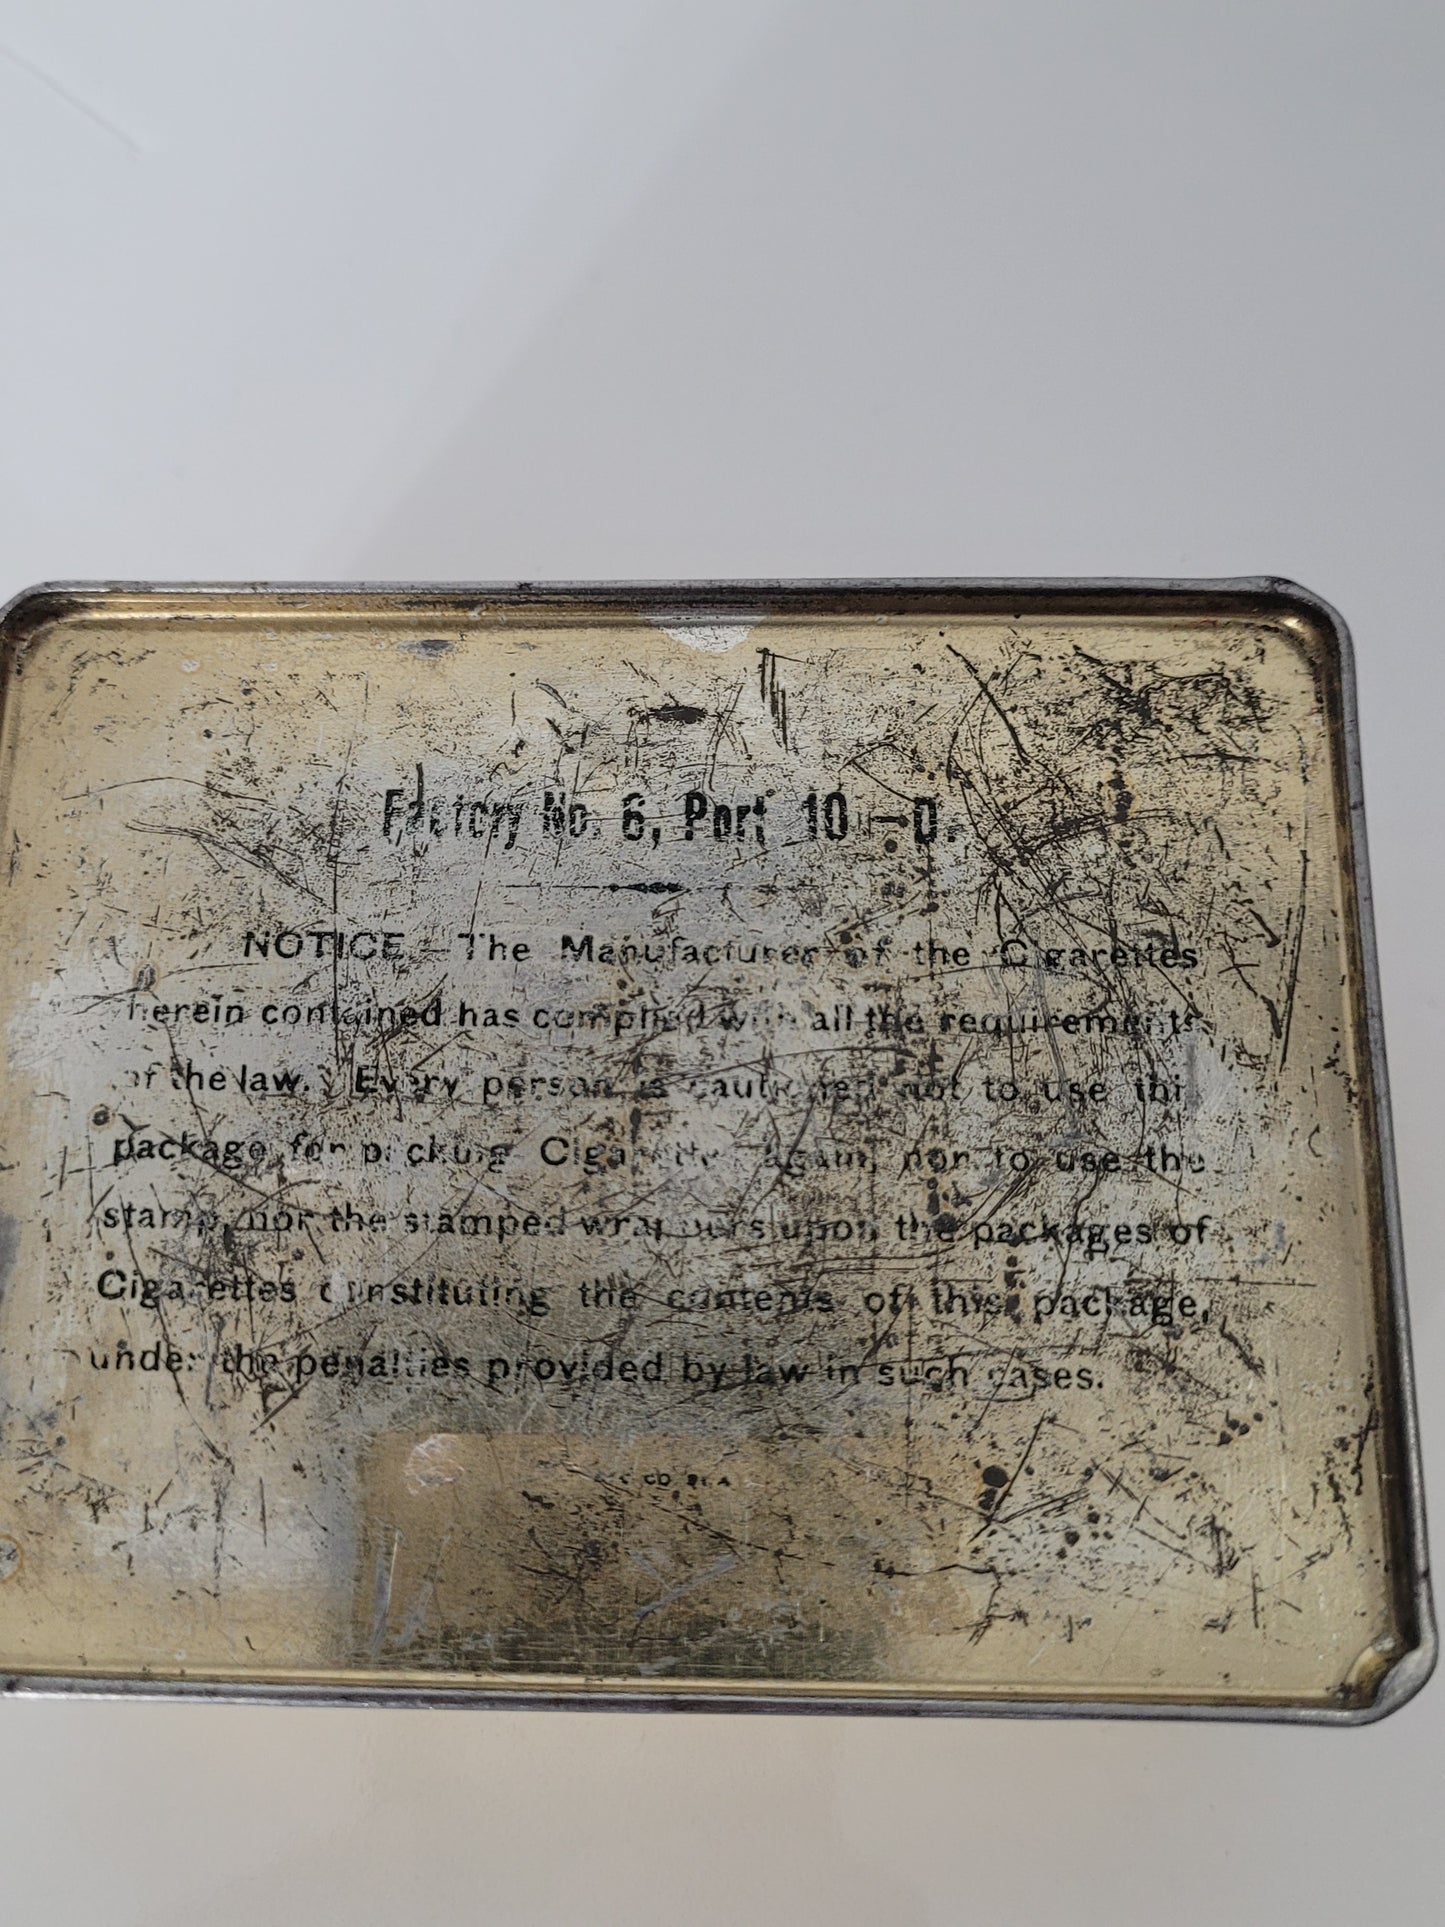 Factory No. 6, Port 10—D.
NOTICE.—The Manufacturer of the Cigarettes
herein contained has complied with all the requirements
of the law. Every person is cautioned not to use this
package for packing Cigarettes again, nor to use the
stamp, nor the stamped wrappers upon the packages of
Cigarettes constituting the contents of this package,
under the penalties provided by law in such cases.
CO. 21.A